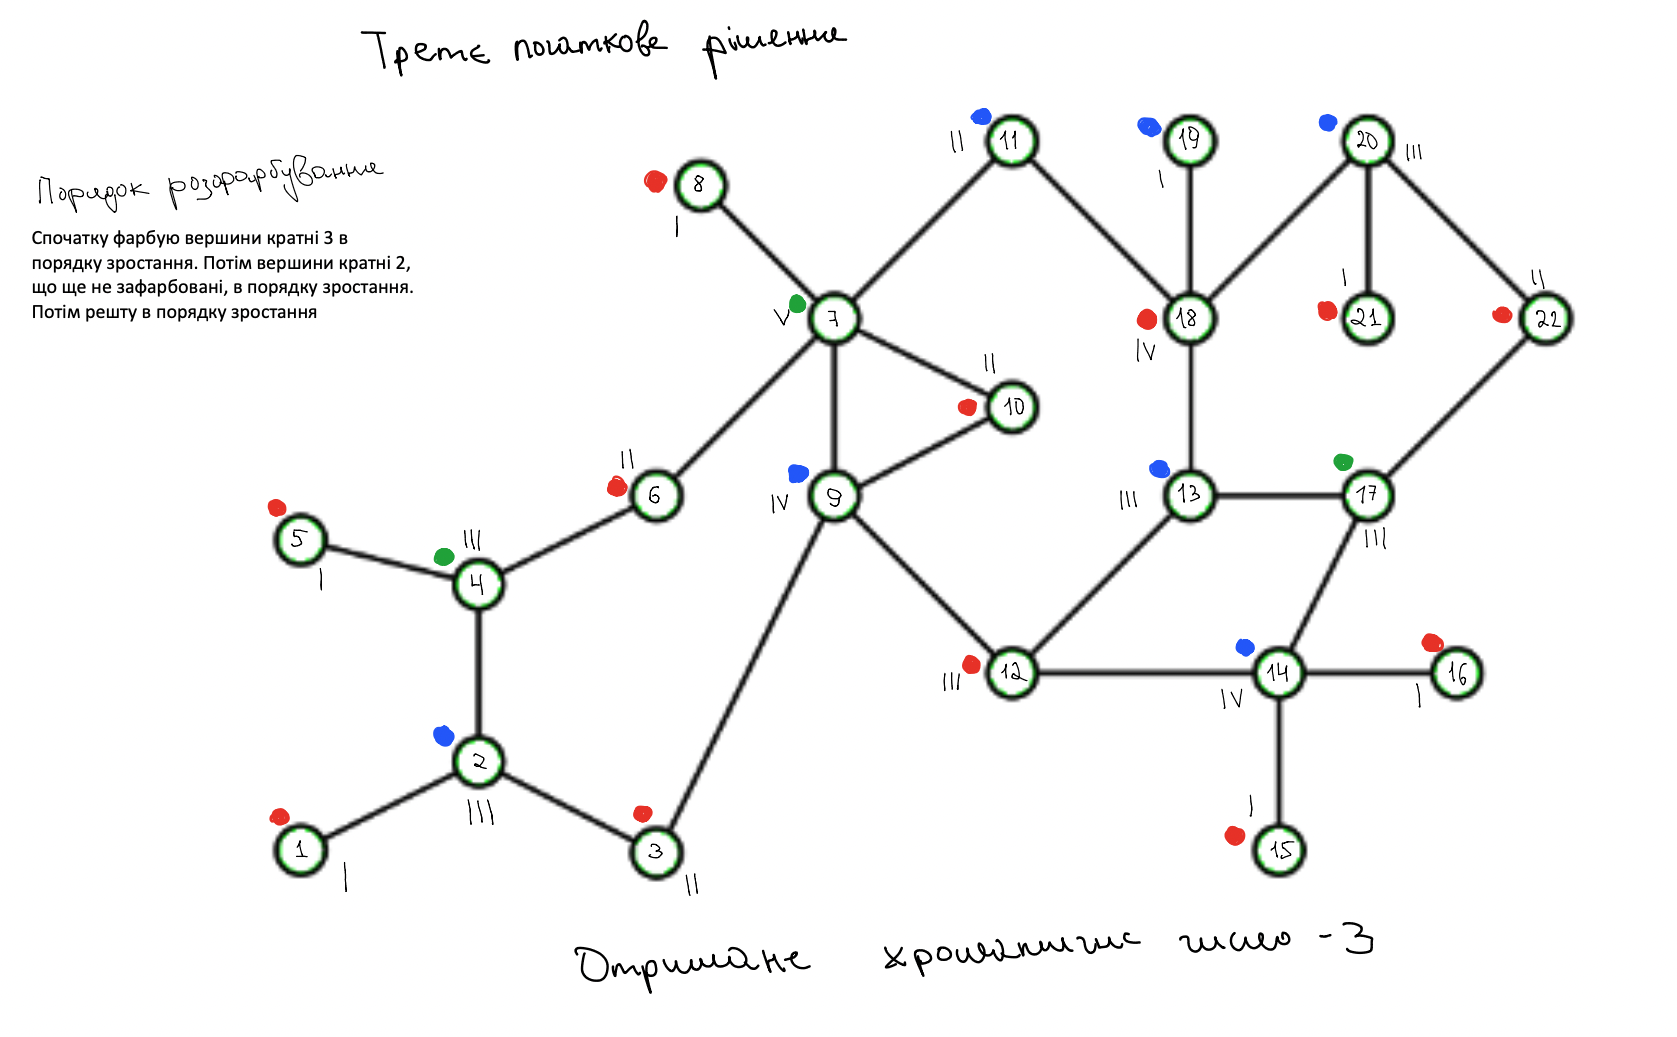 Третє початкове рішення
Порядок розфарбування
Спочатку фарбую вершини кратні 3 в
порядку зростання. Потім вершини кратні 2,
що ще не зафарбовані, в порядку зростання.
Потім решту в порядку зростання
11
II
19
I
20
III
8
I
7
V
18
IV
21
I
22
II
10
II
6
II
9
IV
13
III
17
III
5
I
4
III
12
III
14
IV
16
I
2
III
1
I
3
II
15
I
Отримане хроматичне число - 3